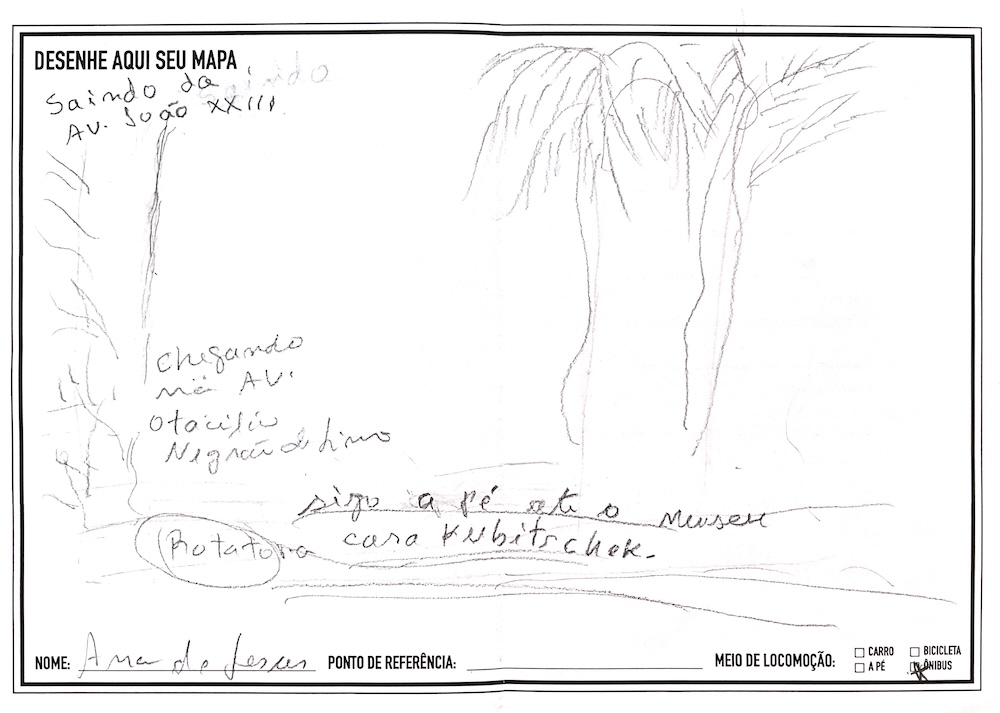 DESENHE AQUI SEU MAPA
Saindo da
Saindo
AV. João XXIII
chegando
na AV.
Otacílio
Negrão de Lima
sigo a pé até o Museu
casa Kubitschek.
Rotatora
NOME: Ana de Jesus
PONTO DE REFERÊNCIA:
MEIO DE LOCOMOÇÃO:
CARRO
BICICLETA
A PÉ
ÔNIBUS